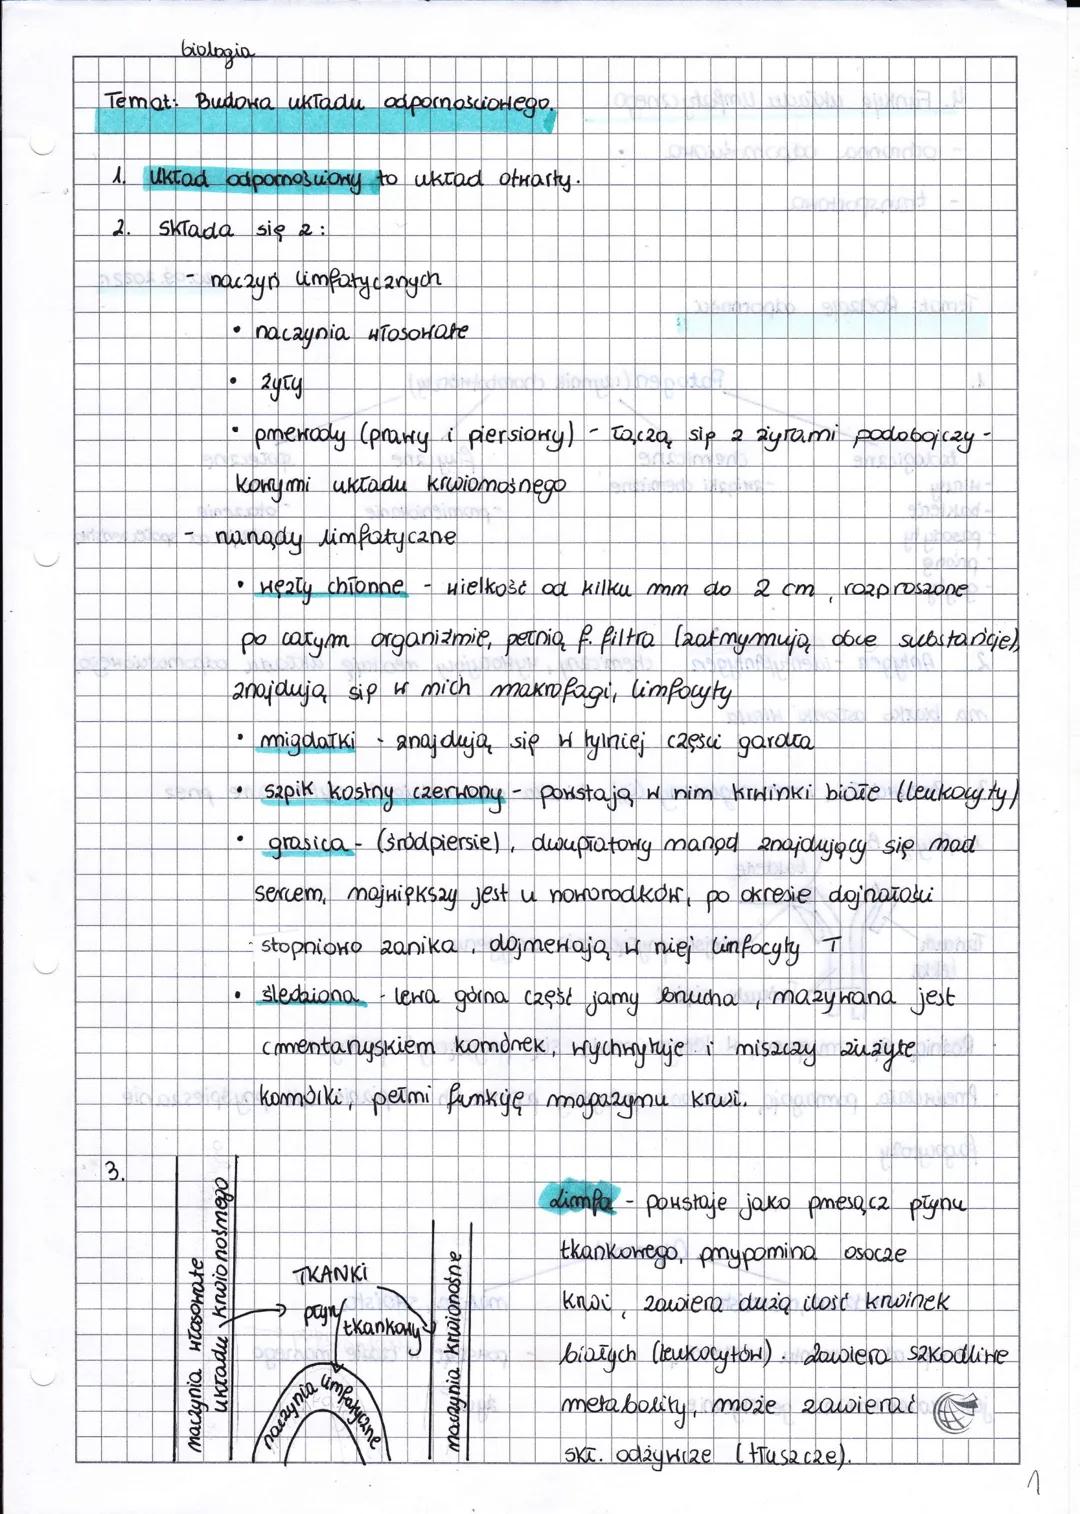 biologia
Temat: Budowa układu odpornościowego.
1. Układ odpornościowy to układ otwarty.
2. Składa się z:
- naczyń limfatycznych
• naczynia włosowate
• żyły
• przewody (prawy i piersiowy) - łączą się z żyłami podobojczy-
kowymi układu krwionośnego
- narządy limfatyczne
• węzły chłonne - wielkość od kilku mm do 2 cm, rozproszone
po całym organizmie, pełnią f. filtra (zatrzymują obce substancje),
znajdują się w nich makrofagi, limfocyty
• migdałki - znajdują się w tylniej części gardła
• szpik kostny czerwony - powstają w nim krwinki białe (leukocyty)
• grasica - (śródpiersie), dwupłatowy narząd znajdujący się nad
sercem, największy jest u noworodków, po okresie dojrzałości
stopniowo zanika, dojrzewają w niej limfocyty T
• śledziona - lewa górna część jamy brzucha, nazywana jest
cmentarzyskiem komórek, wychwytuje i niszczy zużyte
komórki, pełni funkcję magazynu krwi.
3.
naczynia włosowate
układu krwionośnego
TKANKI
płyn
tkankowy
naczynia limfatyczne
naczynia krwionośne
Limfa - powstaje jako przesącz płynu
tkankowego, przypomina osocze
krwi, zawiera dużą ilość krwinek
białych (leukocytów). Zawiera szkodliwe
metabolity, może zawierać
skł. odżywcze (tłuszcze).
1